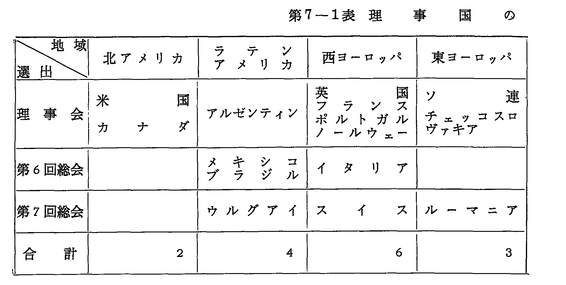 第7−1表 理事国の
地域
選出
北アメリカ
ラテン
アメリカ
西ヨーロッパ
東ヨーロッパ
理事会
米国
カナダ
アルゼンティン
英国
フランス
ポルトガル
ノールウェー
ソ連
チェッコスロ
ヴァキア
第6回総会
メキシコ
ブラジル
イタリア
第7回総会
ウルグアイ
スイス
ルーマニア
合計
2
4
6
3